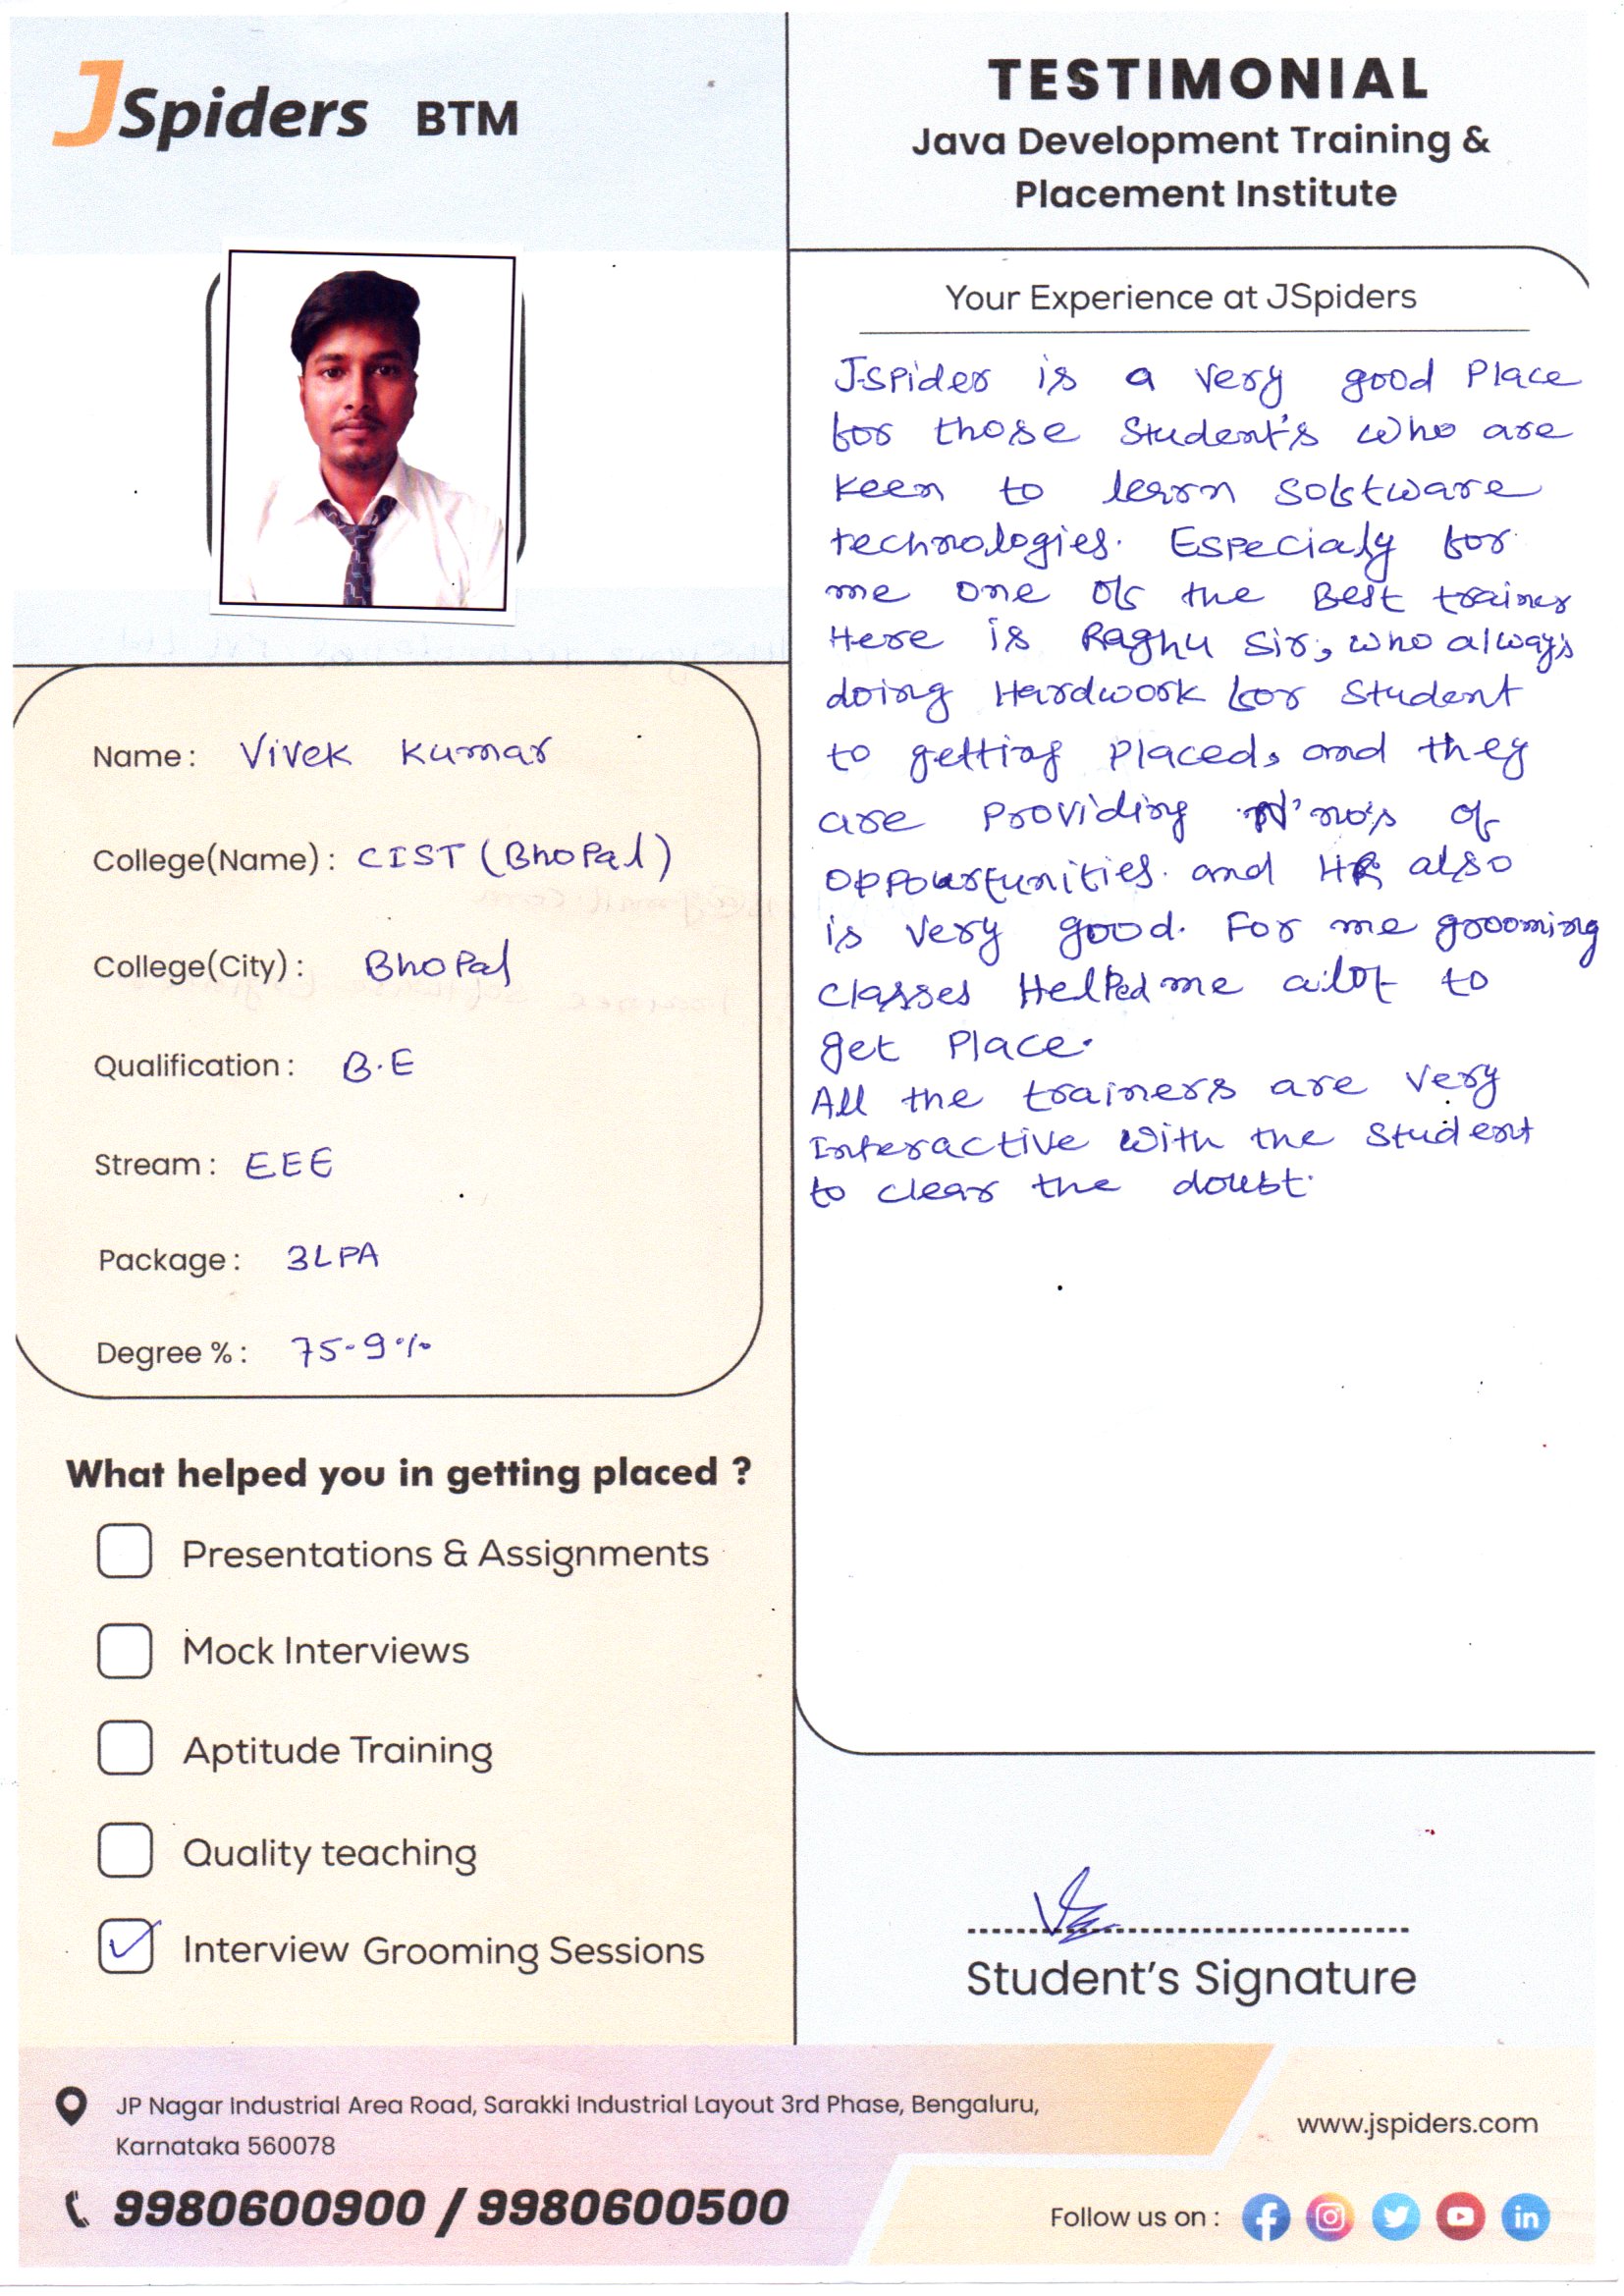 JSpiders BTM
TESTIMONIAL
Java Development Training &
Placement Institute
Name : Vivek Kumar
College(Name) : CIST (BhoPal)
College(City) : BhoPal
Qualification : B.E
Stream : EEE
Package : 3LPA
Degree % : 75.9%
What helped you in getting placed ?
Presentations & Assignments
Mock Interviews
Aptitude Training
Quality teaching
Interview Grooming Sessions
Your Experience at JSpiders
J-spider is a very good Place
for those Student's who are
keen to learn software
technologies. Especialy for
me one of the Best trainer
Here is Raghu Sir, who always
doing Hardwork for Student
to getting Placed, and they
are Providing N'no's of
oppourtunities. and HR also
is very good. For me grooming
classes Helped me alot to
get Place.
All the trainers are very
Interactive with the student
to clear the doubt.
Student's Signature
JP Nagar Industrial Area Road, Sarakki Industrial Layout 3rd Phase, Bengaluru,
Karnataka 560078
9980600900 / 9980600500
www.jspiders.com
Follow us on :